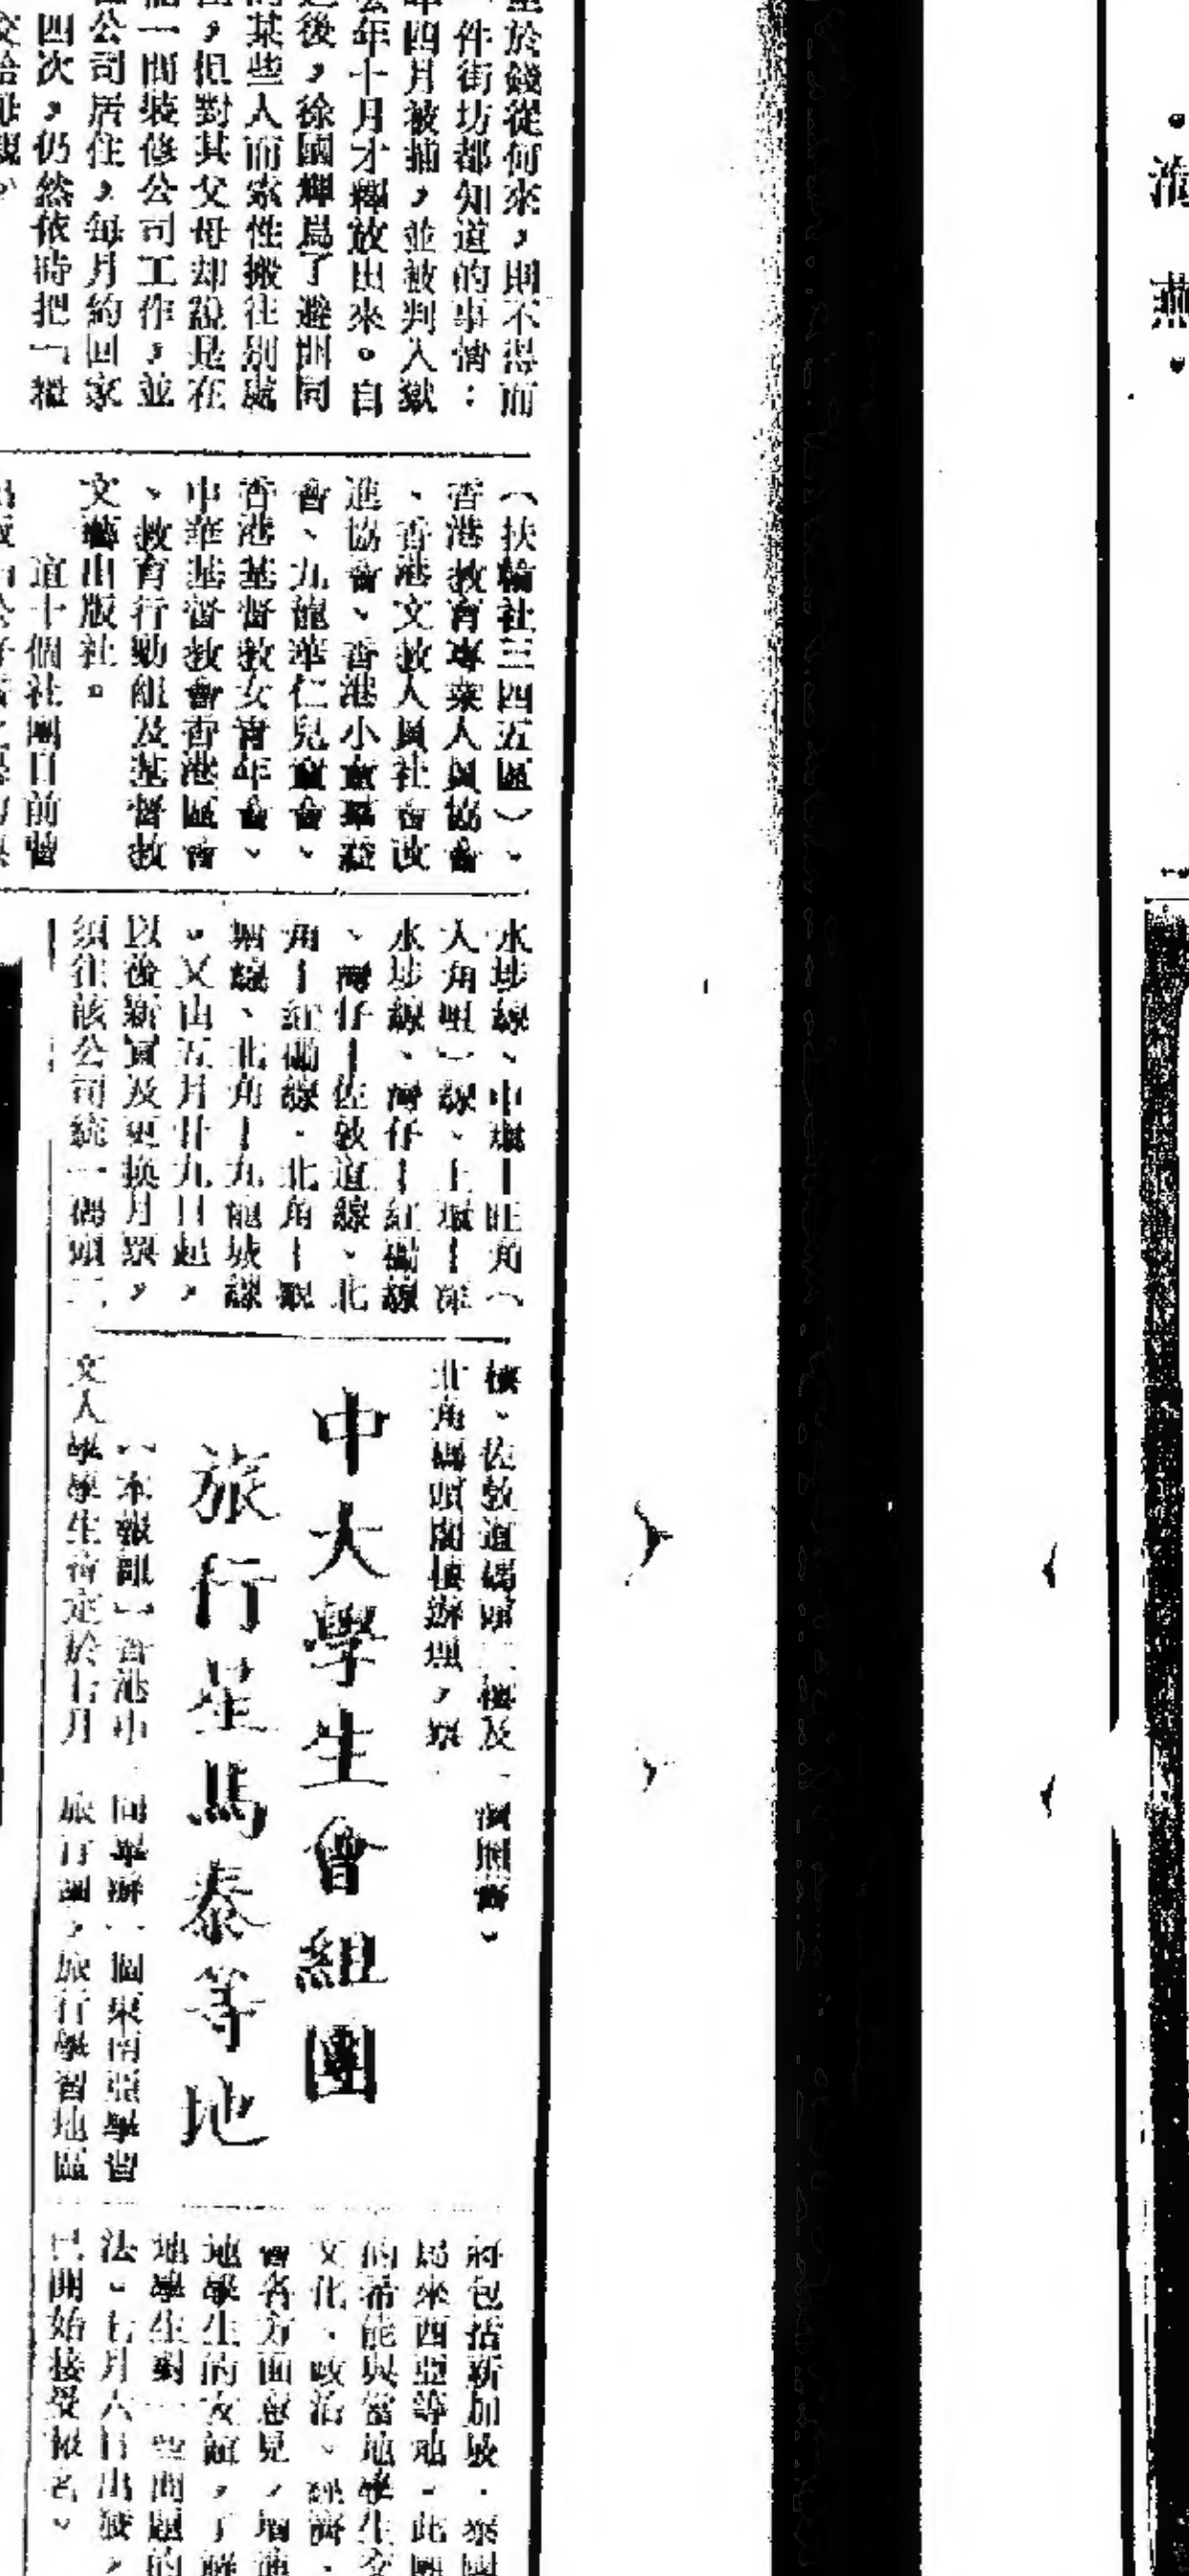 於錢從何來，則不得而
件街坊都知道的事情：
年四月被捕，並被判入獄
年十月才釋放出來。自
後，徐國輝爲了避開同
某些人而索性搬往別處
，但對其父母却說是在
一間裝修公司工作，並
公司居住，每月約回家
四次，仍然依時把「糧
（扶輪社三四五區）、
香港教育專業人員協會
、香港文教人員社會改
進協會、香港小童羣益
會、九龍華仁兒童會、
香港基督教女青年會、
中華基督教會香港區會
、教育行動組及基督教
文藝出版社。
這十個社團日前曾
水埗線、中環－旺角（
大角咀）線、上環－深
水埗線、灣仔－紅磡線
、灣仔－佐敦道線、北
角－紅磡線、北角－觀
塘線、北角－九龍城線
。又由五月廿九日起，
以後新買及更換月票，
須往該公司統一碼頭二
樓、佐敦道碼頭二樓及
北角碼頭閣樓辦理，票
中大學生會組團
旅行星馬泰等地
（本報訊）香港中
文大學學生會定於七月
間舉辦一個東南亞學習
旅行團，旅行學習地區
將包括新加坡、泰國
馬來西亞等地。此團
的希能與當地學生交
文化、政治、經濟、
會各方面意見，增進
地學生的友誼，了解
地學生對一些問題的
法。七月六日出發，
已開始接受報名。
海燕